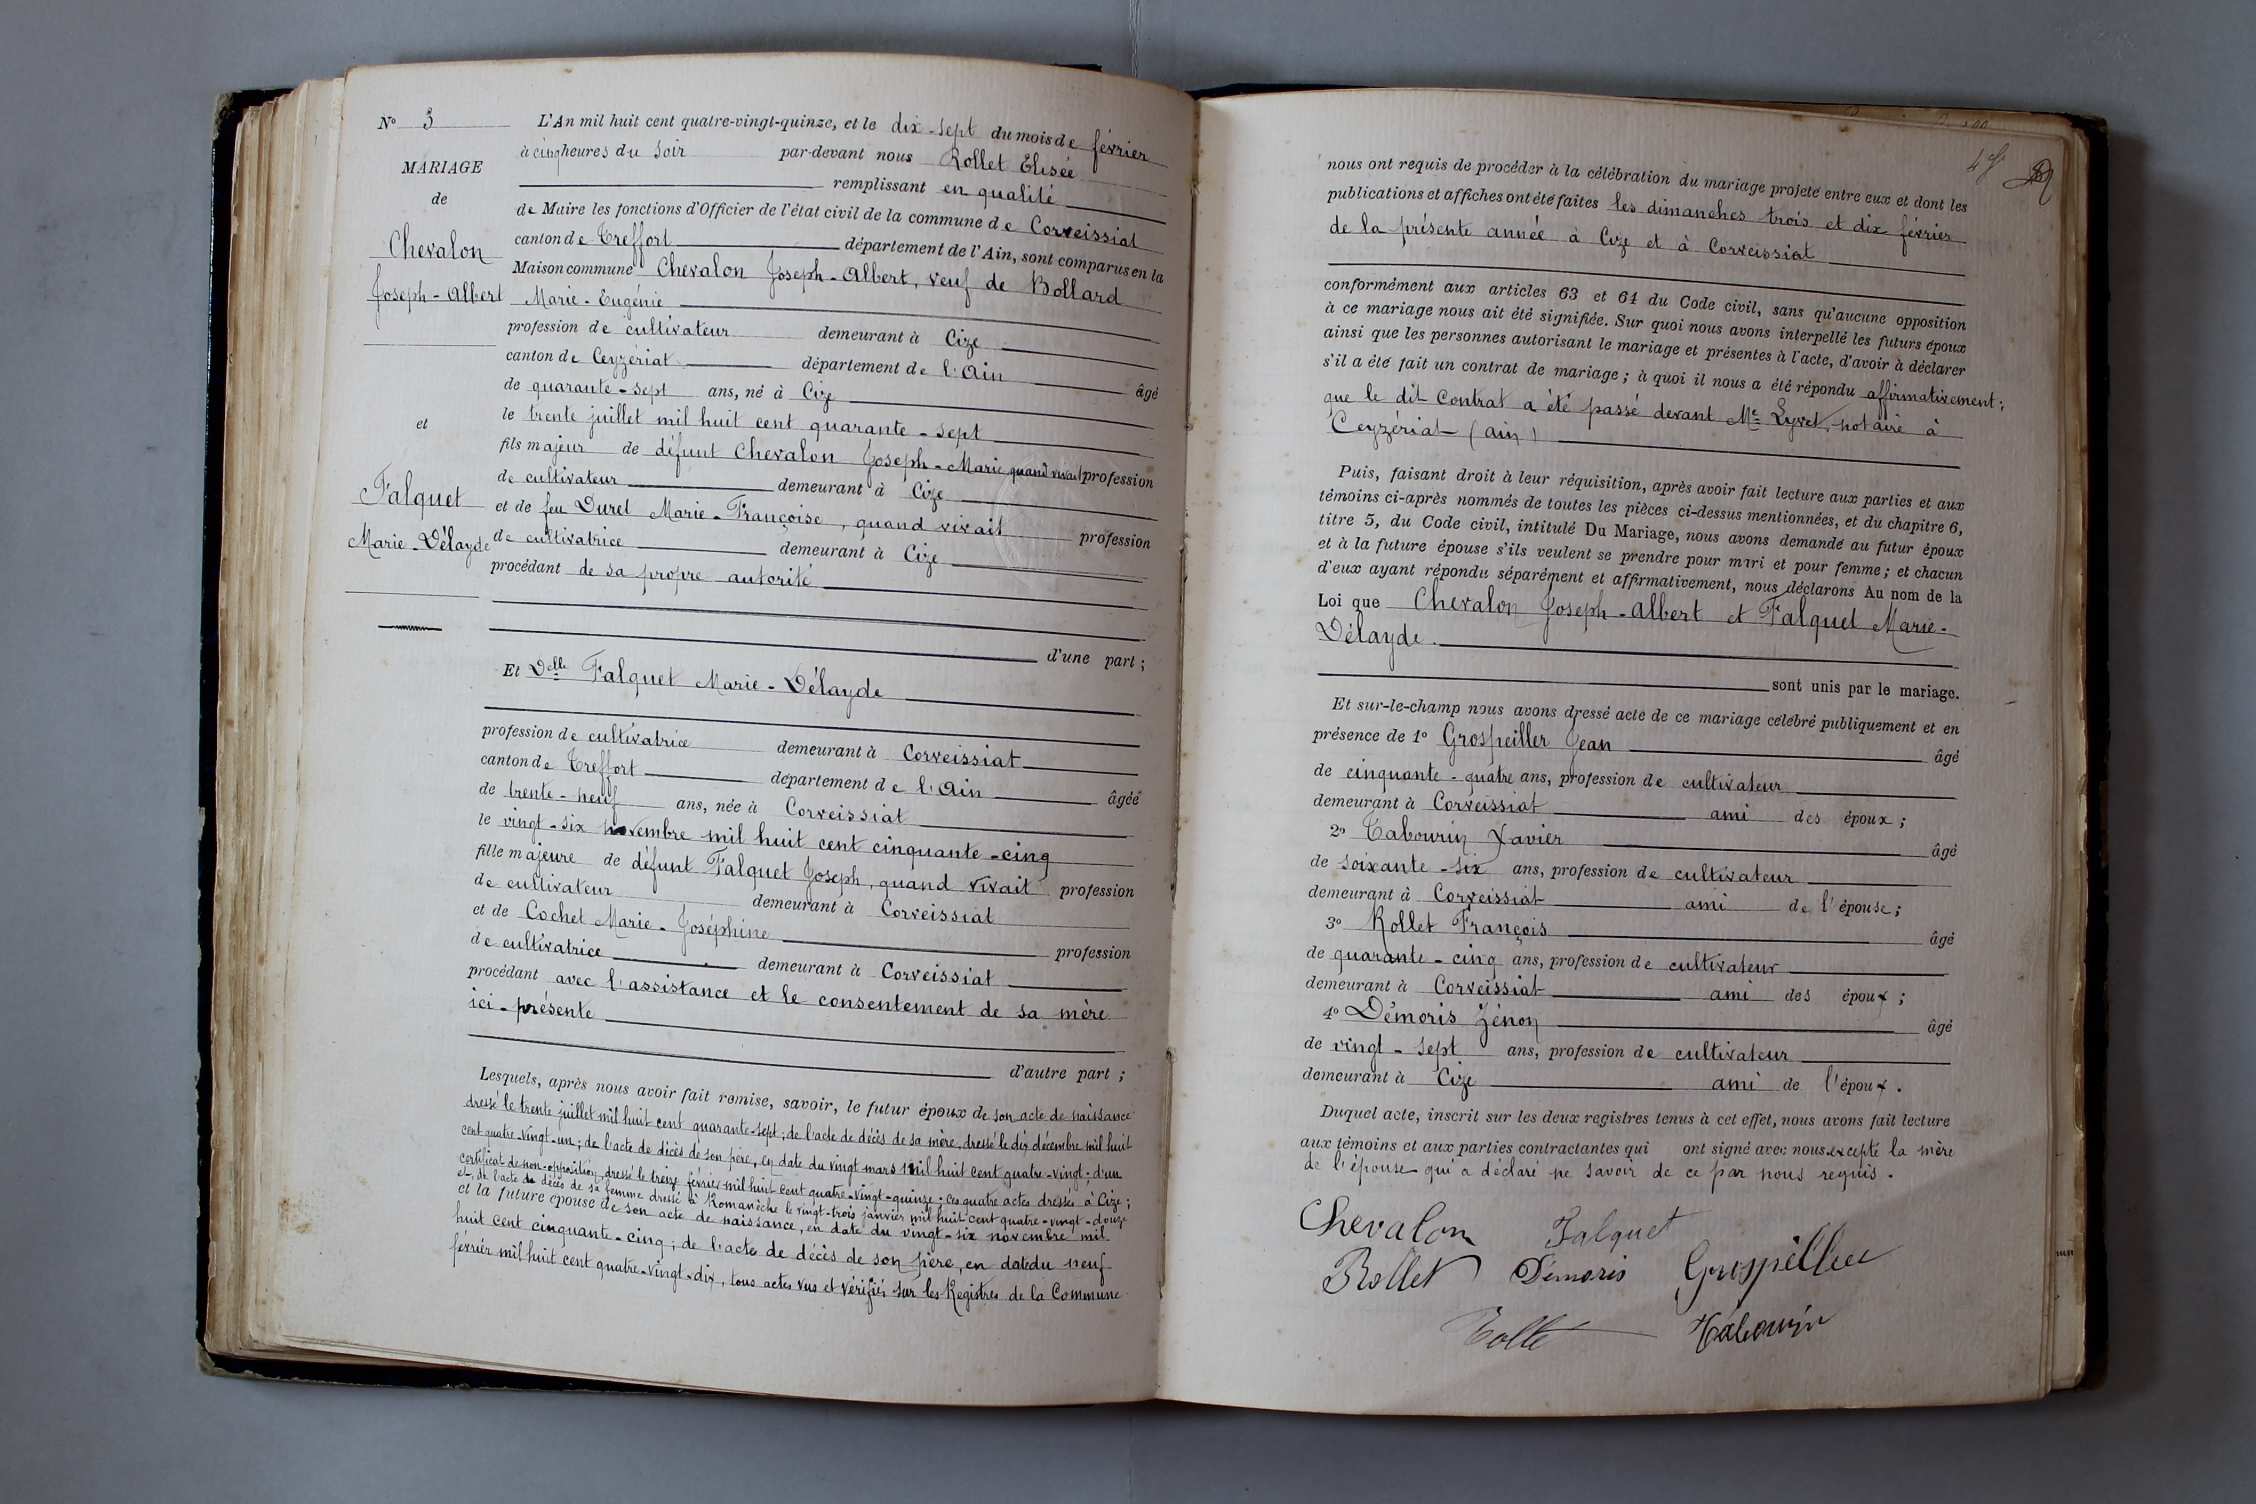 N° 3
MARIAGE
de
Chevalon
Joseph-Albert
et
Falquet
Marie-Délayde
L'An mil huit cent quatre-vingt-quinze, et le dix-sept du mois de février
à cinq heures du soir par-devant nous Rollet Elisée
remplissant en qualité
de Maire les fonctions d'Officier de l'état civil de la commune de Corveissiat
canton de Treffort département de l'Ain, sont comparus en la
Maison commune Chevalon Joseph-Albert, veuf de Bollard
Marie-Eugénie
profession de cultivateur demeurant à Cize
canton de Ceyzériat département de l'Ain âgé
de quarante-sept ans, né à Cize
le trente juillet mil huit cent quarante-sept
fils majeur de défunt Chevalon Joseph-Marie quand vivait profession
de cultivateur demeurant à Cize
et de feu Durel Marie-Françoise, quand vivait profession
de cultivatrice demeurant à Cize
procédant de sa propre autorité
d'une part ;
Et Delle Falquet Marie-Délayde
profession de cultivatrice demeurant à Corveissiat
canton de Treffort département de l'Ain âgée
de trente-neuf ans, née à Corveissiat
le vingt-six novembre mil huit cent cinquante-cinq
fille majeure de défunt Falquet Joseph, quand vivait profession
de cultivateur demeurant à Corveissiat
et de Cochet Marie-Joséphine profession
de cultivatrice demeurant à Corveissiat
procédant avec l'assistance et le consentement de sa mère
ici-présente
d'autre part ;
Lesquels, après nous avoir fait remise, savoir, le futur époux de son acte de naissance
dressé le trente juillet mil huit cent quarante-sept ; de l'acte de décès de sa mère, dressé le dix décembre mil huit
cent quatre-vingt-un ; de l'acte de décès de son père, en date du vingt mars mil huit cent quatre-vingt ; d'un
certificat de non-opposition, dressé le treize février mil huit cent quatre-vingt-quinze ; ces quatre actes dressés à Cize ;
et, de l'acte de décès de sa femme dressé à Romanèche le vingt-trois janvier mil huit cent quatre-vingt-douze
et la future épouse de son acte de naissance, en date du vingt-six novembre mil
huit cent cinquante-cinq ; de l'acte de décès de son père, en date du neuf
février mil huit cent quatre-vingt-dix, tous actes vus et vérifiés sur les Registres de la Commune
nous ont requis de procéder à la célébration du mariage projeté entre eux et dont les
publications et affiches ont été faites les dimanches trois et dix février
de la présente année à Cize et à Corveissiat
conformément aux articles 63 et 64 du Code civil, sans qu'aucune opposition
à ce mariage nous ait été signifiée. Sur quoi nous avons interpellé les futurs époux
ainsi que les personnes autorisant le mariage et présentes à l'acte, d'avoir à déclarer
s'il a été fait un contrat de mariage ; à quoi il nous a été répondu affirmativement ;
que le dit Contrat a été passé devant Me Lyvet, notaire à
Ceyzériat (ain)
Puis, faisant droit à leur réquisition, après avoir fait lecture aux parties et aux
témoins ci-après nommés de toutes les pièces ci-dessus mentionnées, et du chapitre 6,
titre 5, du Code civil, intitulé Du Mariage, nous avons demandé au futur époux
et à la future épouse s'ils veulent se prendre pour mari et pour femme ; et chacun
d'eux ayant répondu séparément et affirmativement, nous déclarons Au nom de la
Loi que Chevalon Joseph-Albert et Falquet Marie-
Délayde.
sont unis par le mariage.
Et sur-le-champ nous avons dressé acte de ce mariage célébré publiquement et en
présence de 1° Grospeiller Jean âgé
de cinquante-quatre ans, profession de cultivateur
demeurant à Corveissiat ami des époux ;
2° Tabourin Xavier âgé
de soixante-six ans, profession de cultivateur
demeurant à Corveissiat ami de l'épouse ;
3° Rollet François âgé
de quarante-cinq ans, profession de cultivateur
demeurant à Corveissiat ami des époux ;
4° Démoris Zénon âgé
de vingt-sept ans, profession de cultivateur
demeurant à Cize ami de l'époux.
Duquel acte, inscrit sur les deux registres tenus à cet effet, nous avons fait lecture
aux témoins et aux parties contractantes qui ont signé avec nous excepté la mère
de l'épouse qui a déclaré ne savoir de ce par nous requis.
Chevalon Falquet
Rollet Démoris Grospellier
Tabourin